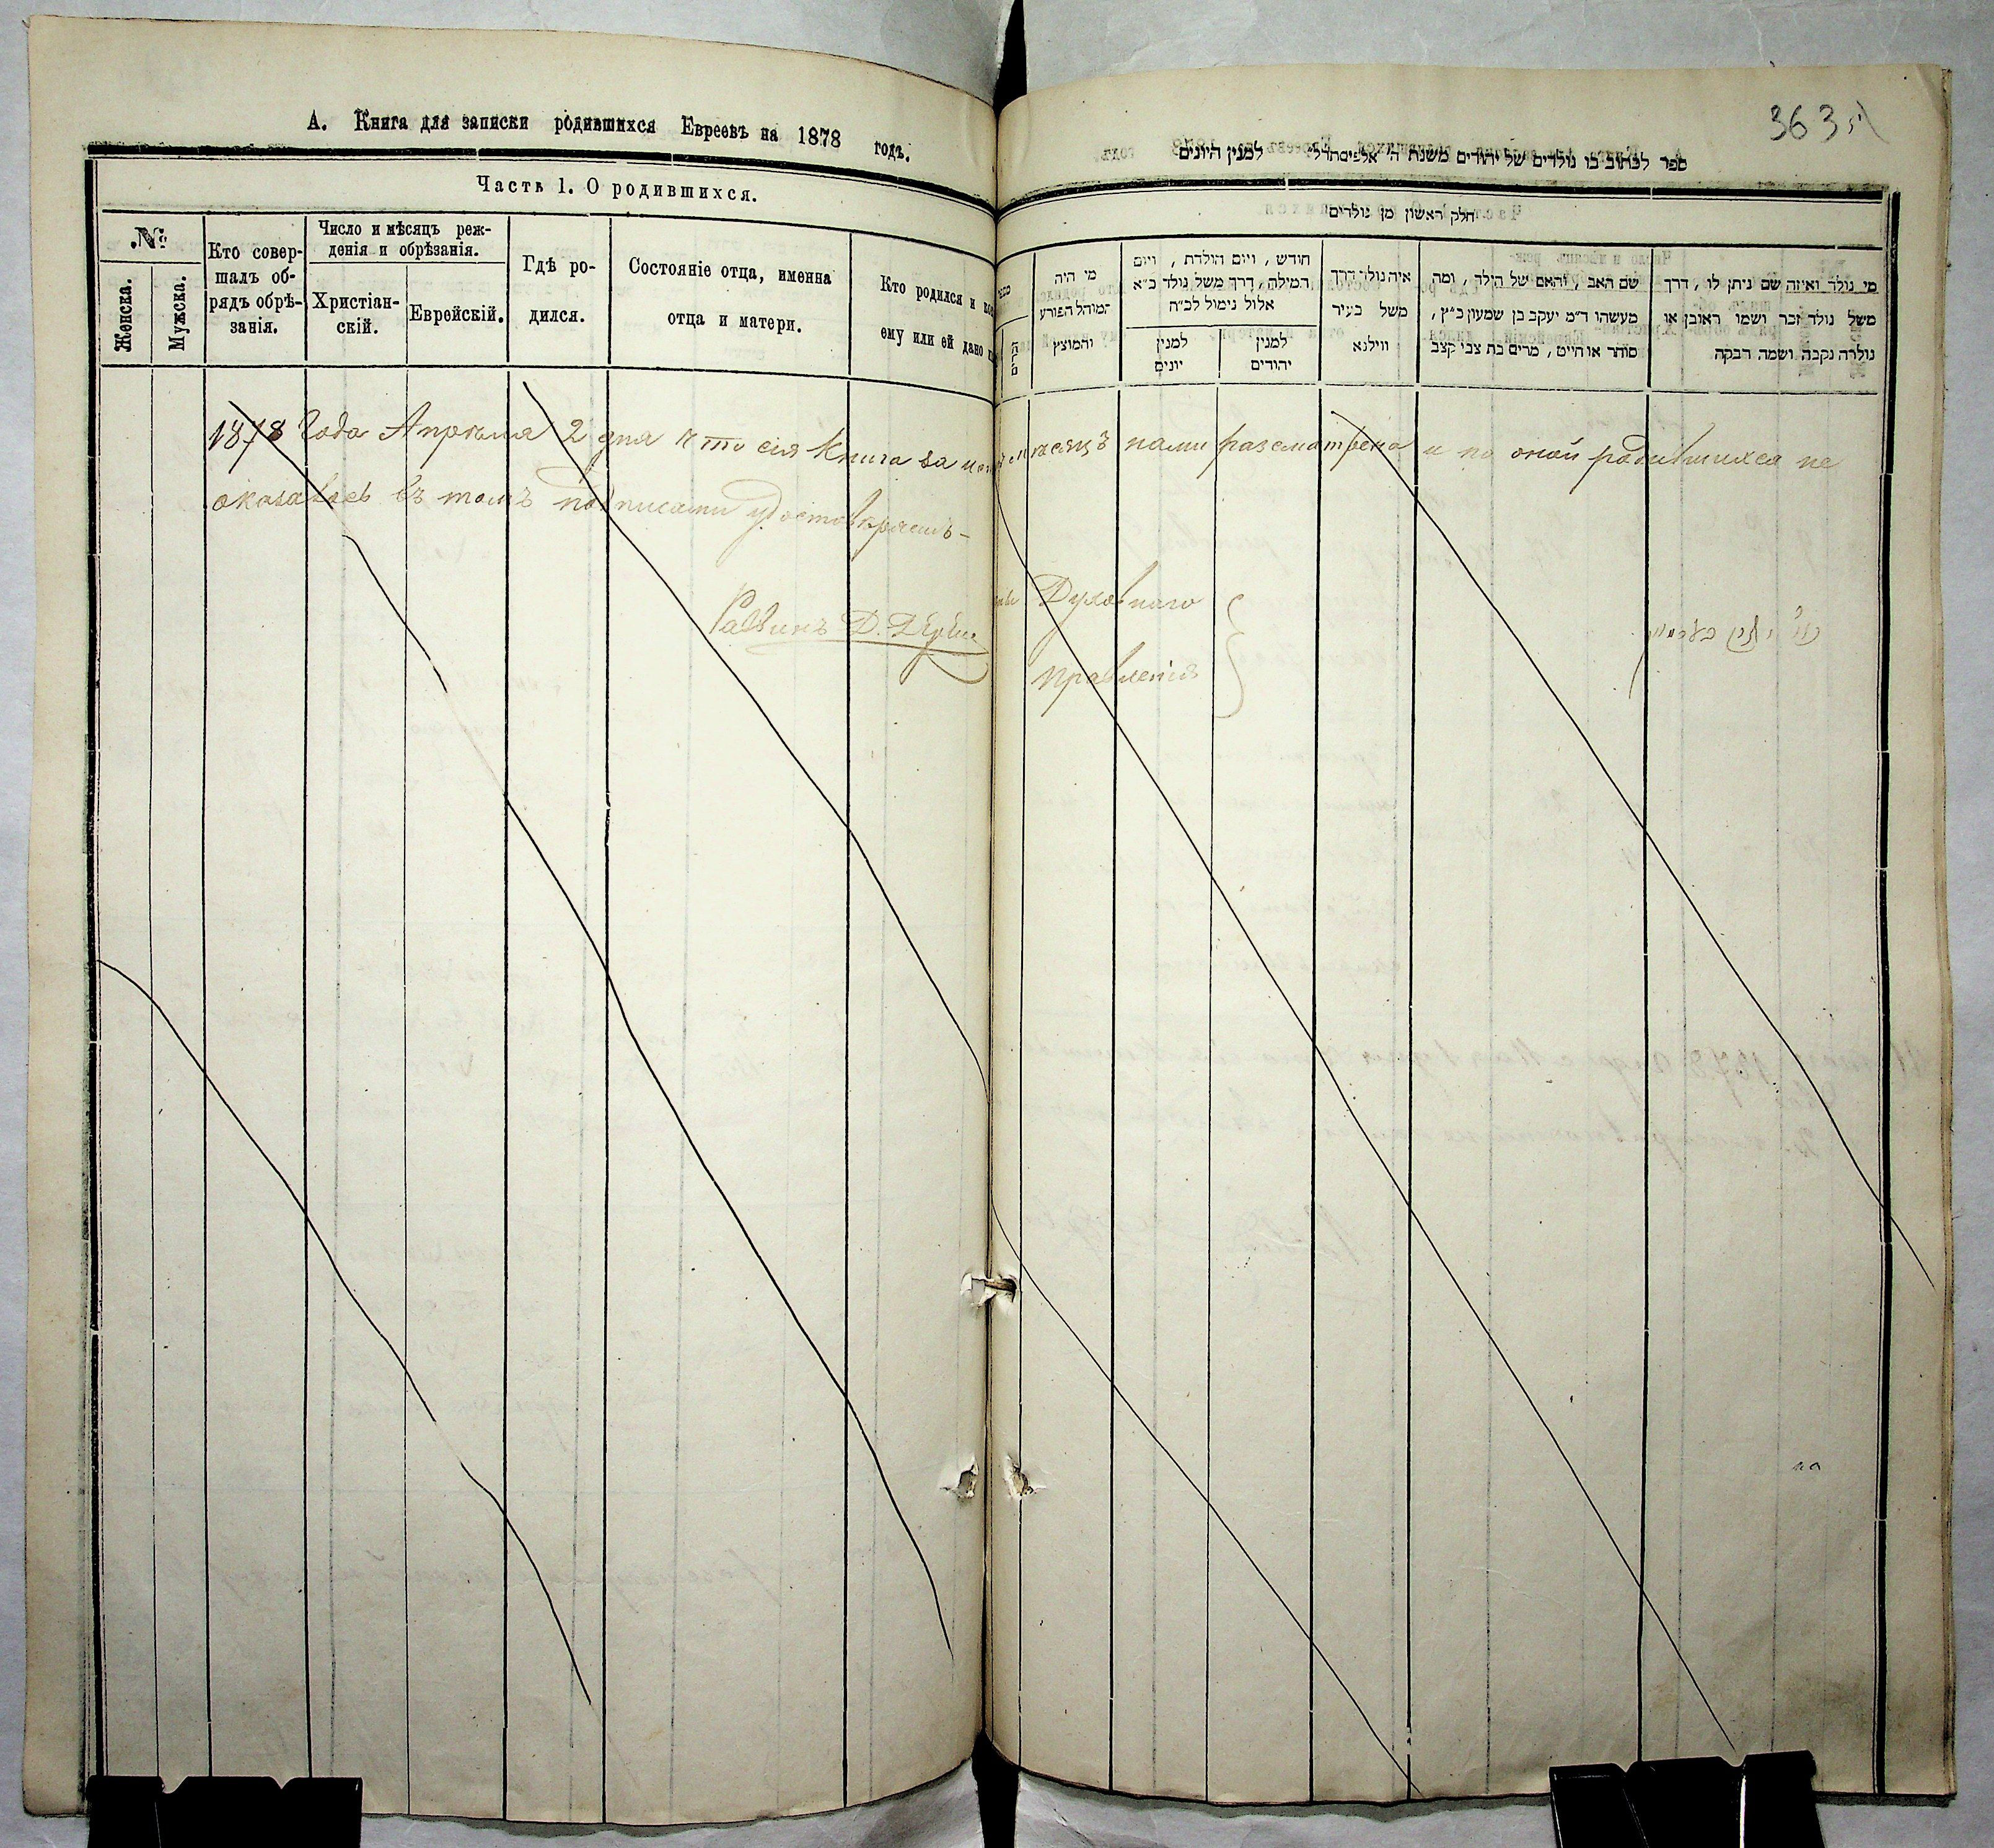 А. Книга для записки родившихся Евреевъ на 1878 годъ.
Часть 1. О родившихся.
№
Женска.
Мужска.
Кто совер-
шалъ об-
рядъ обрѣ-
занія.
Число и мѣсяцъ реж-
денія и обрѣзанія.
Христіан-
скій.
Еврейскій.
Гдѣ ро-
дился.
Состояніе отца, именна
отца и матери.
Кто родился и
ему или ей дано
363
ספר לכתוב בו נולדים של יהודים משנת ה' אלפים למנין היונים
חלק ראשון מן נולדים
מי היה
המוהל הפורע
והמוצץ
חודש , ויום הולדת , ויום
המילה, דרך משל נולד כ״א
אלול נימול לכ״ה
למנין
יונים
למנין
יהודים
איה נולד דרך
משל בעיר
ווילנא
שם האב , והאם של הילד , ומה
מעשהו ד״מ יעקב בן שמעון כ״ץ ,
סוחר או חייט , מרים בת צבי קצב
מי נולד ואיזה שם ניתן לו , דרך
משל נולד זכר ושמו ראובן או
נולדה נקבה ושמה רבקה
1878 Года Апрѣля 2 дня что сія Книга за мѣсяцъ нами разсмотрена и по оной родившихся не
оказалось въ томъ подписами удостовѣряемъ-
Раввинъ Д.
Духовнаго
Правленія